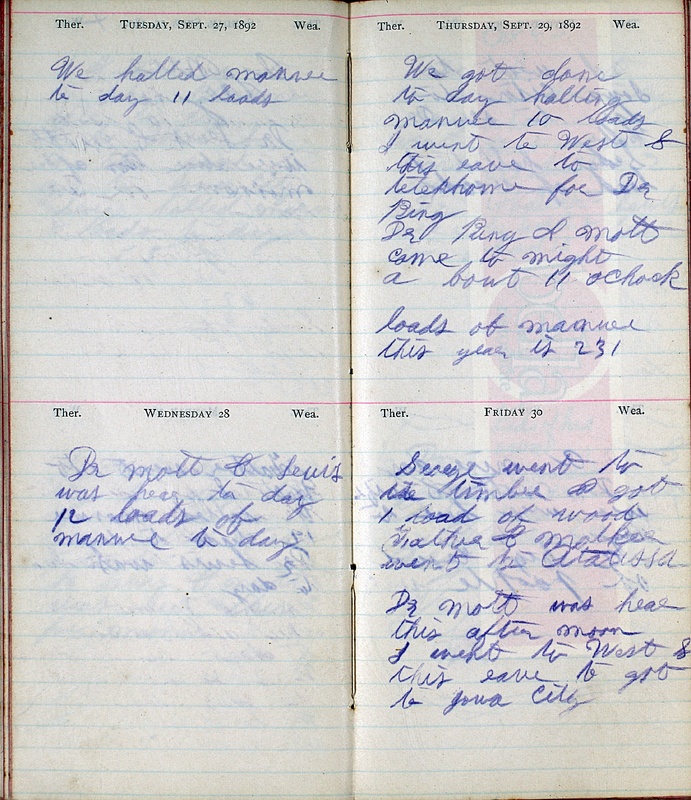 Ther. TUESDAY, SEPT. 27, 1892 Wea.
We halted manure
to day 11 loads
Ther. WEDNESDAY 28 Wea.
Dr Mott & Lewis
was hear to day
12 loads of
manure to day
Ther. THURSDAY, SEPT. 29, 1892 Wea.
We got done
to day halting
manure 10 loads
I went to West &
this eave to
telekhome for Dr
Ring
Dr Ring & Mott
come to night
a bout 11 ochock
loads of manure
this year is 231
Ther. FRIDAY 30 Wea.
went to
the timber & got
1 load of wood
Father & Mother
went to
Dr Mott was hear
this after moon
I went to West &
this eave to got
to Iowa City